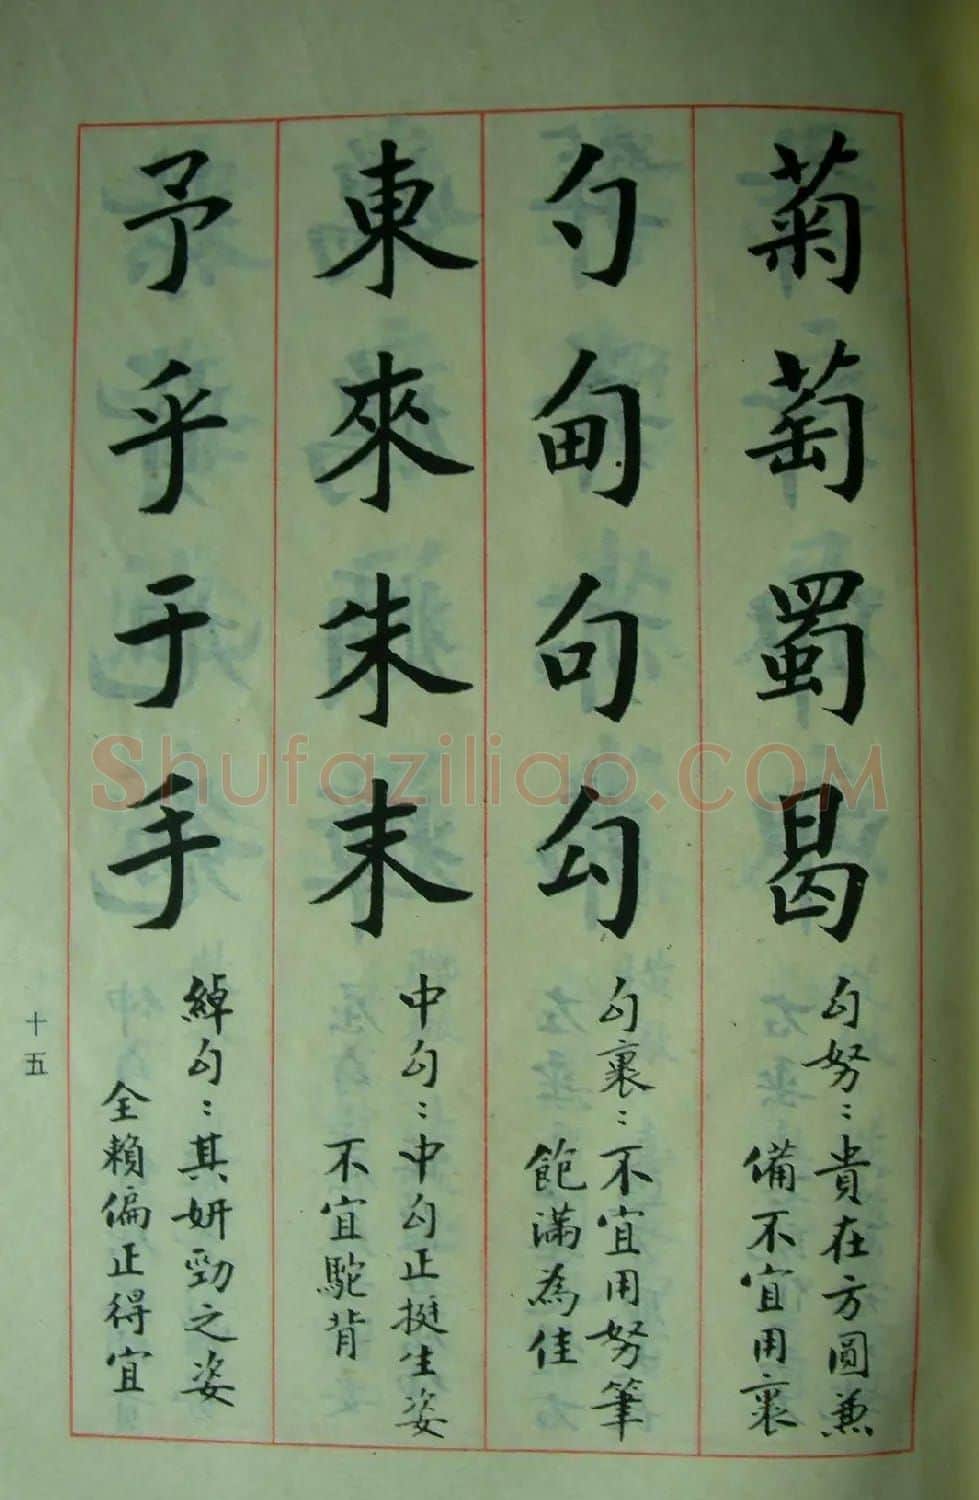 菊萄蜀曷
勾努：貴在方圓兼
備不宜用裹
勺甸句勾
勾裹：不宜用努筆
飽滿為佳
東來朱末
中勾：中勾正挺生姿
不宜駝背
予乎于手
綽勾：其妍勁之姿
全賴偏正得宜
十五
Shufaziliao.COM